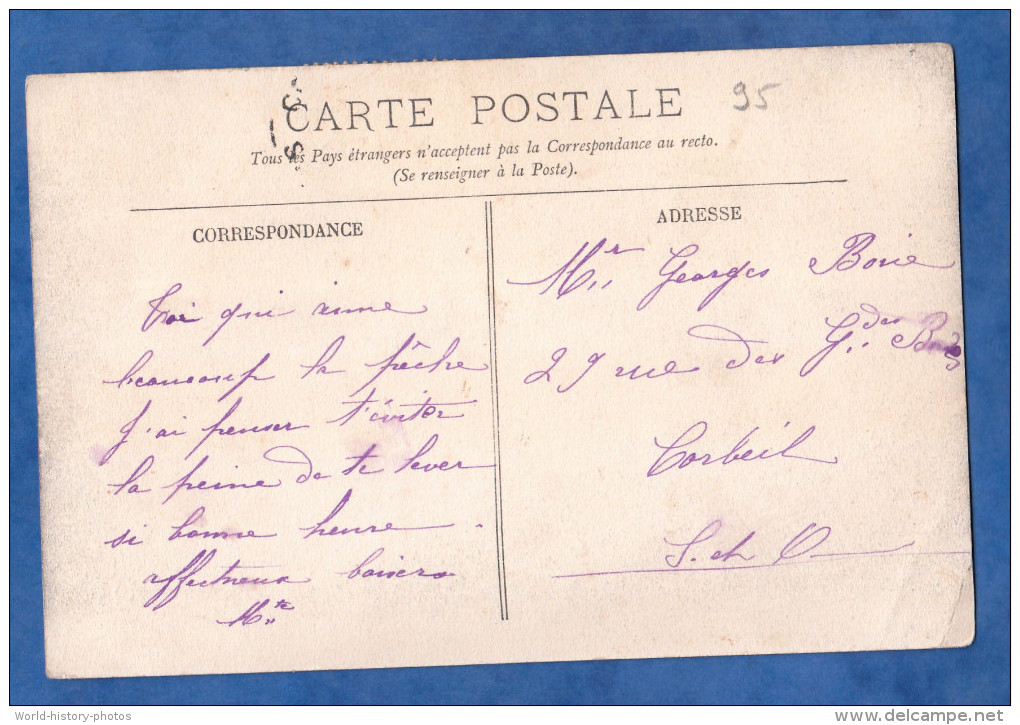 CARTE POSTALE
95
Tous les Pays étrangers n'acceptent pas la Correspondance au recto.
(Se renseigner à la Poste).
CORRESPONDANCE
Toi qui aime
beaucoup la pêche
J'ai penser t'éviter
la peine de te lever
si bonne heure.
affectueux baisers
Mte
ADRESSE
Mr Georges Borie
29 rue des Gdes
Corbeil
S. et O
World-history-photos
www.delcampe.net